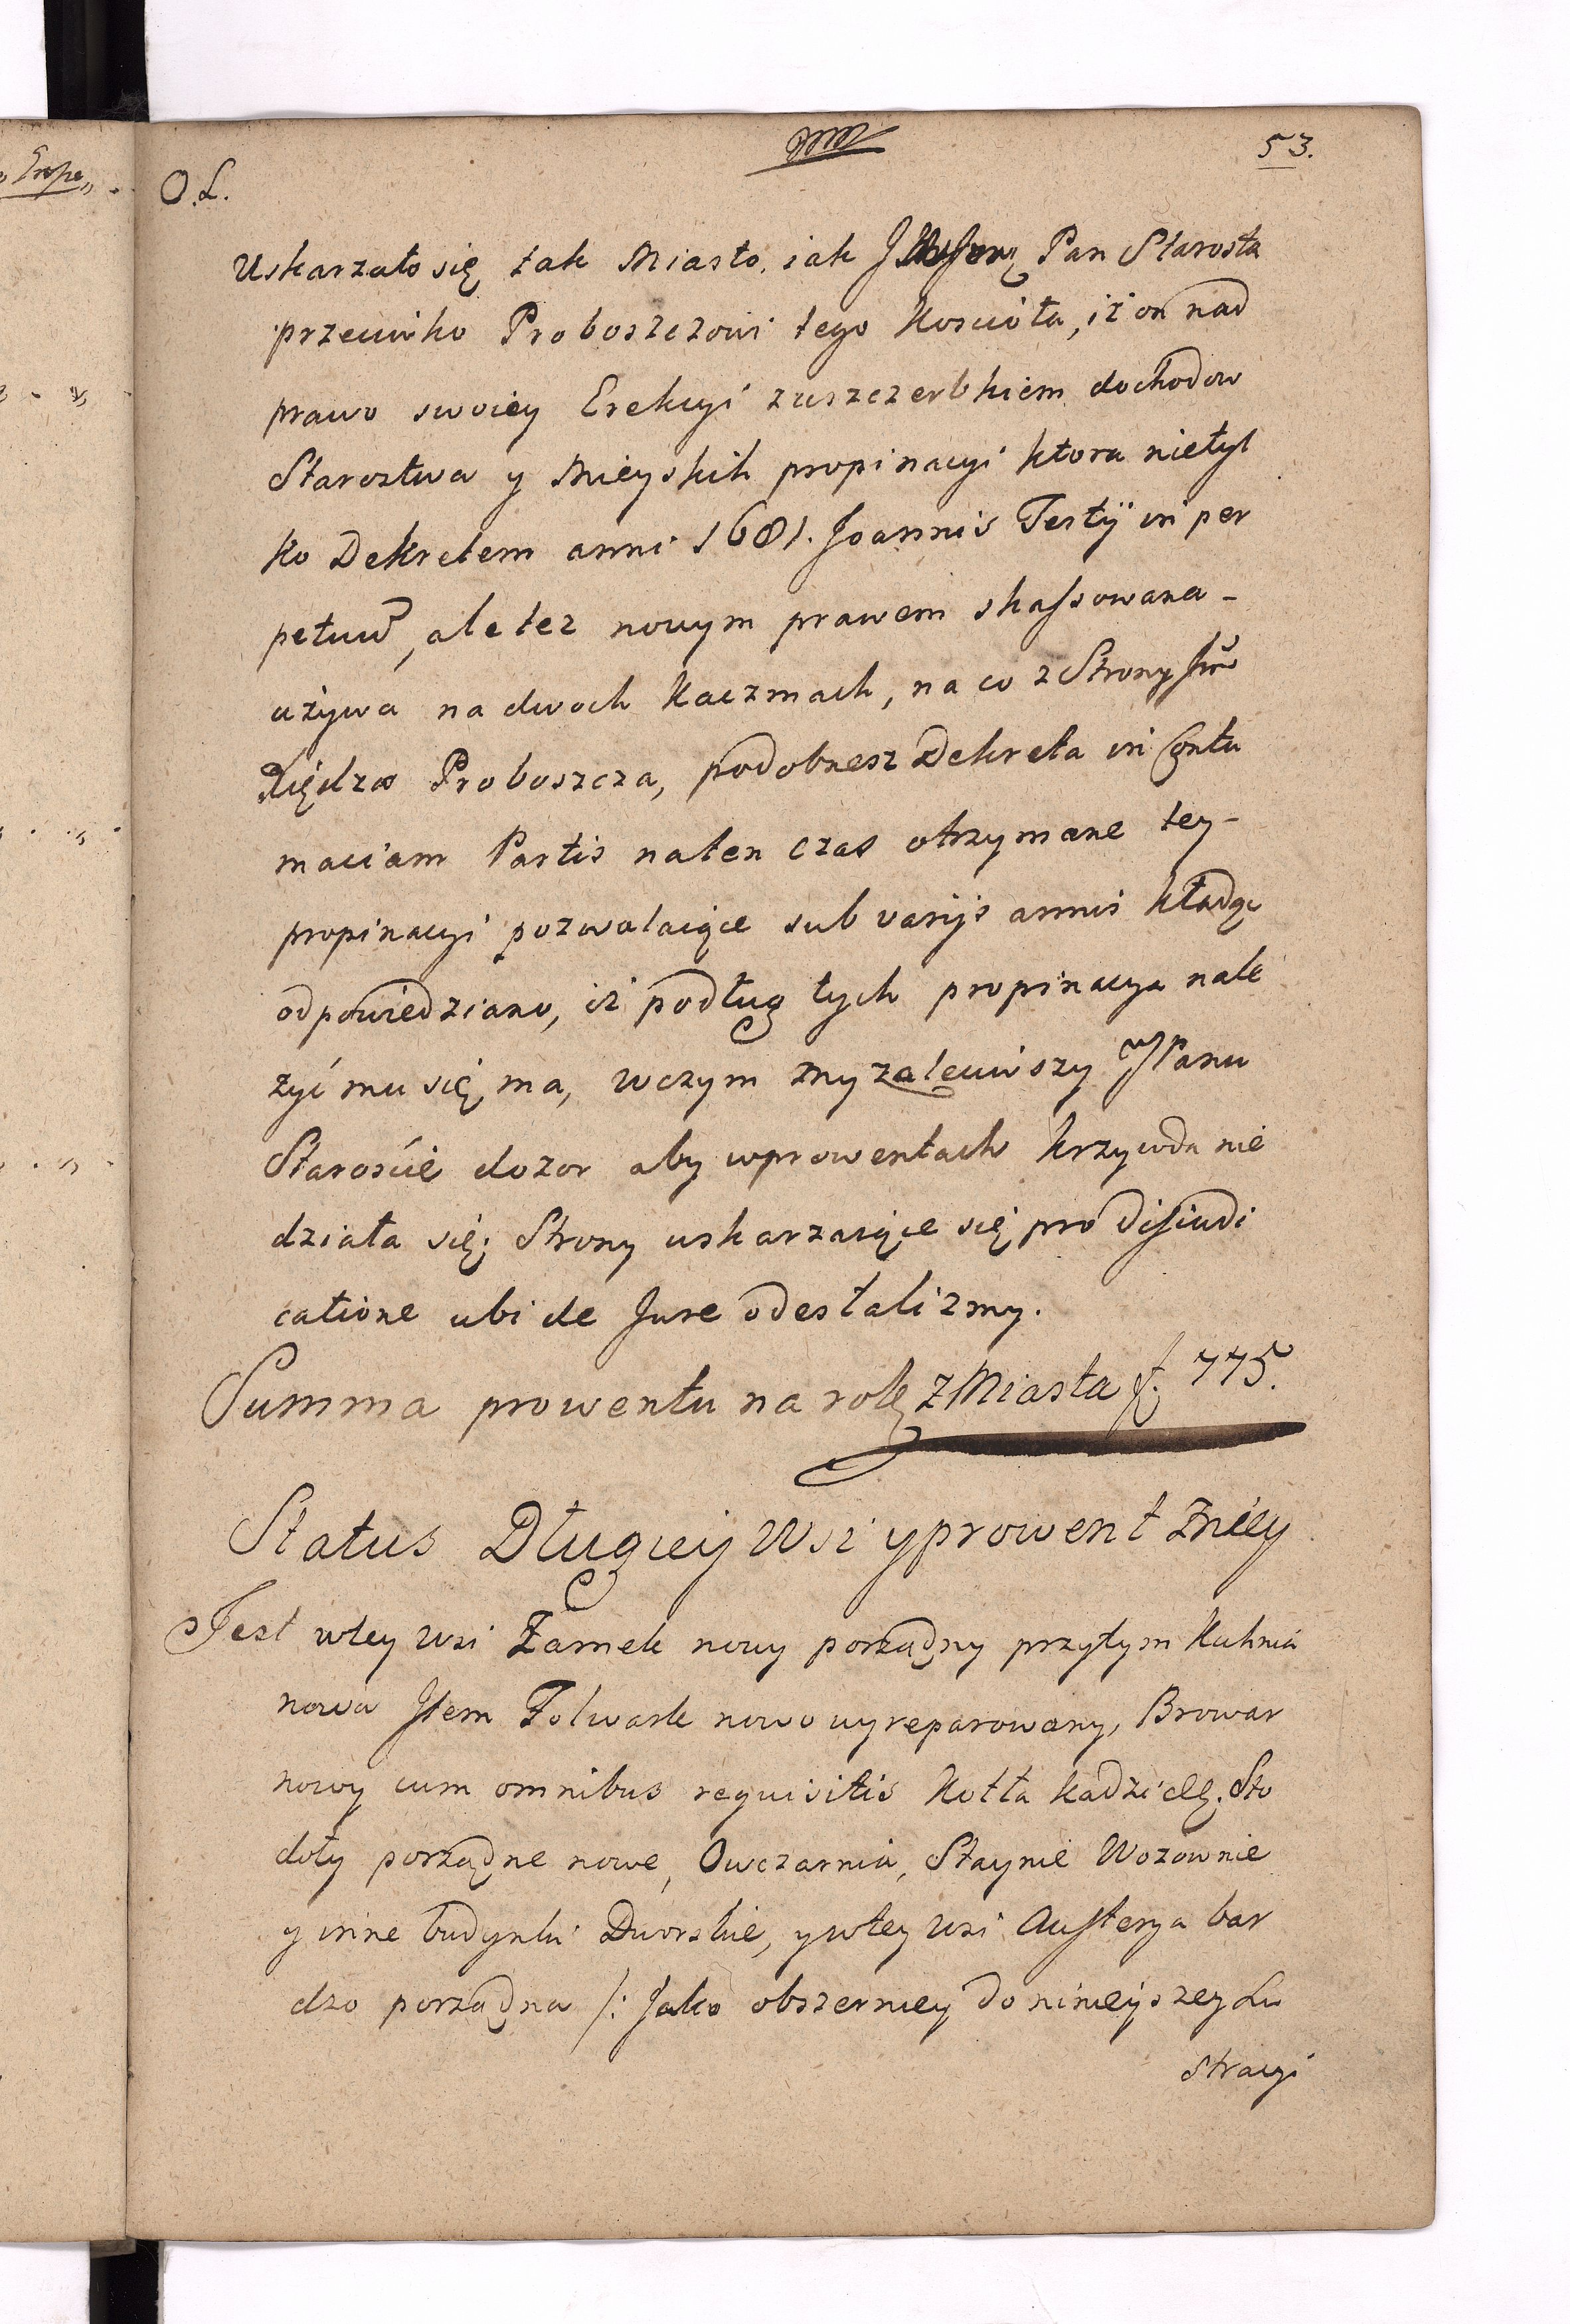 53.
O.L.
Uskarzało się tak Miasto, iak Pan Starosta
przeciwko Proboszczowi tego Kosciôła, iż on nad
prawo swoiey Erekcyi zuszczerbkiem dochodow
Starostwa y Mieyskih propinacyi ktora nietyl
ko Dekretem anni 1681. Joannis Tertij in per
petuũ, ale tez nowym prawem skassowana -
używa na dwoch Kaczmach, na co z Strony Jmć
Xiędza Proboszcza, podobnesz Dekreta in Contu
maciam Partis naten czas otrzymane tey -
propinacyi pozwalaiące sub varijs annis kładąc
odpowiedziano, iż podług tych propinacya nale
żyć mu się ma, wczym my zaleciwszy JPanu
Starościé dozor aby wprowentach krzywda nie
działa się; Strony uskarzaiące się pro disiudi
catione ubi de Jure odesłalizmy.
Summa prowentu na rolę z Miasta f. 775.
Status Długiey Wsi y prowent zniéy
Jest wtey wsi Zamek nowy porządny przytym Kuhnia
nowa Jtem Folwark nowo wyreparowany, Browar
nowy cum omnibus requisitis Kotła kadzi ett. Sto
doły porządne nowe, Owczarnia, Staynie Wozownie
y inne budynki Dworskie, y wtey wsi Austerya bar
dzo porządna /: Jako obszerniey do ninieyszey Lu
stracyi